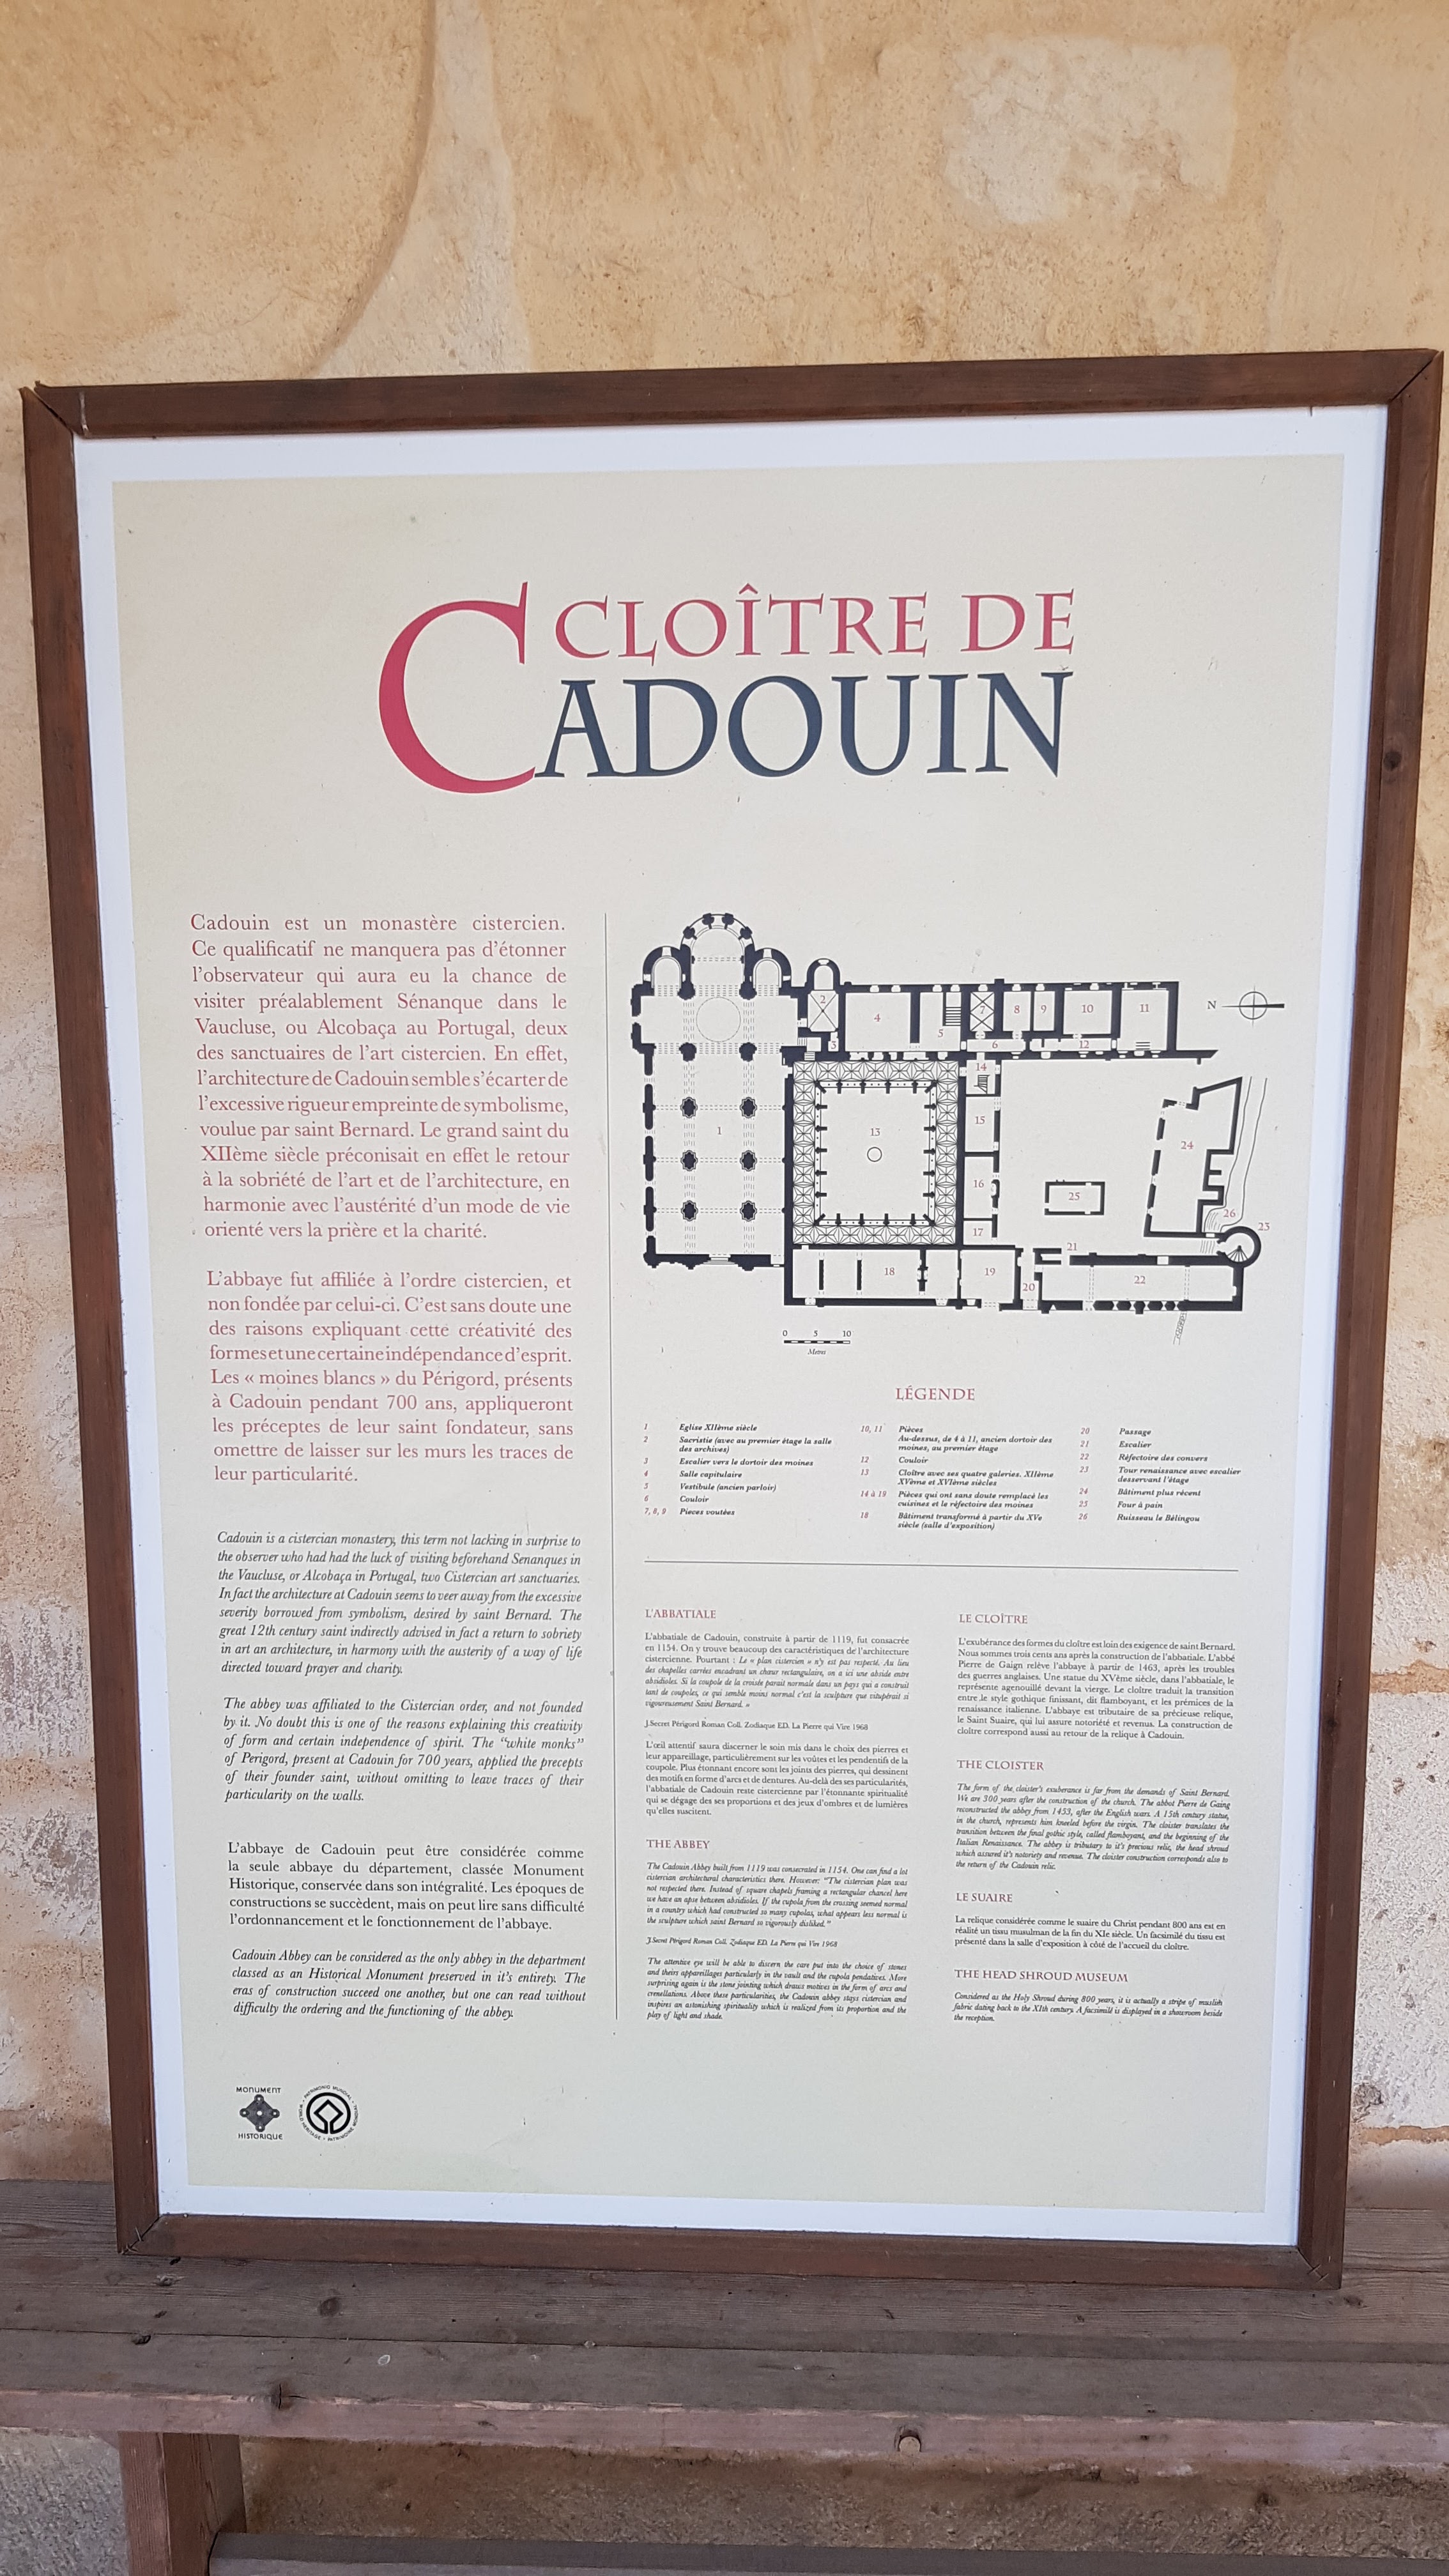 CLOÎTRE DE
CADOUIN
Cadouin est un monastère cistercien.
Ce qualificatif ne manquera pas d'étonner
l'observateur qui aura eu la chance de
visiter préalablement Sénanque dans le
Vaucluse, ou Alcobaça au Portugal, deux
des sanctuaires de l'art cistercien. En effet,
l'architecture de Cadouin semble s'écarter de
l'excessive rigueur empreinte de symbolisme,
voulue par saint Bernard. Le grand saint du
XIIème siècle préconisait en effet le retour
à la sobriété de l'art et de l'architecture, en
harmonie avec l'austérité d'un mode de vie
orienté vers la prière et la charité.
L'abbaye fut affiliée à l'ordre cistercien, et
non fondée par celui-ci. C'est sans doute une
des raisons expliquant cette créativité des
formes et une certaine indépendance d'esprit.
Les « moines blancs » du Périgord, présents
à Cadouin pendant 700 ans, appliqueront
les préceptes de leur saint fondateur, sans
omettre de laisser sur les murs les traces de
leur particularité.
Cadouin is a cistercian monastery, this term not lacking in surprise to
the observer who had had the luck of visiting beforehand Senanques in
the Vaucluse, or Alcobaça in Portugal, two Cistercian art sanctuaries.
In fact the architecture at Cadouin seems to veer away from the excessive
severity borrowed from symbolism, desired by saint Bernard. The
great 12th century saint indirectly advised in fact a return to sobriety
in art an architecture, in harmony with the austerity of a way of life
directed toward prayer and charity.
The abbey was affiliated to the Cistercian order, and not founded
by it. No doubt this is one of the reasons explaining this creativity
of form and certain independence of spirit. The "white monks"
of Perigord, present at Cadouin for 700 years, applied the precepts
of their founder saint, without omitting to leave traces of their
particularity on the walls.
L'abbaye de Cadouin peut être considérée comme
la seule abbaye du département, classée Monument
Historique, conservée dans son intégralité. Les époques de
constructions se succèdent, mais on peut lire sans difficulté
l'ordonnancement et le fonctionnement de l'abbaye.
Cadouin Abbey can be considered as the only abbey in the department
classed as an Historical Monument preserved in it's entirety. The
eras of construction succeed one another, but one can read without
difficulty the ordering and the functioning of the abbey.
MONUMENT
HISTORIQUE
PATRIMONIO MUNDIAL • WORLD HERITAGE • PATRIMOINE MONDIAL
N
2
4
7
8
9
10
11
5
3
6
12
14
1
13
15
24
16
25
26
17
23
21
18
19
20
22
0 5 10
Mètres
LÉGENDE
1 Eglise XIIème siècle
2 Sacristie (avec au premier étage la salle
des archives)
3 Escalier vers le dortoir des moines
4 Salle capitulaire
5 Vestibule (ancien parloir)
6 Couloir
7, 8, 9 Pieces voutées
10, 11 Pièces
Au-dessus, de 4 à 11, ancien dortoir des
moines, au premier étage
12 Couloir
13 Cloître avec ses quatre galeries. XIIème
XVème et XVIème siècles
14 à 19 Pièces qui ont sans doute remplacé les
cuisines et le réfectoire des moines
18 Bâtiment transformé à partir du XVe
siècle (salle d'exposition)
20 Passage
21 Escalier
22 Réfectoire des convers
23 Tour renaissance avec escalier
desservant l'étage
24 Bâtiment plus récent
25 Four à pain
26 Ruisseau le Bélingou
L'ABBATIALE
L'abbatiale de Cadouin, construite à partir de 1119, fut consacrée
en 1154. On y trouve beaucoup des caractéristiques de l'architecture
cistercienne. Pourtant : Le « plan cistercien » n'y est pas respecté. Au lieu
des chapelles carrées encadrant un chœur rectangulaire, on a ici une abside entre
absidioles. Si la coupole de la croisée parait normale dans un pays qui a construit
tant de coupoles, ce qui semble moins normal c'est la sculpture que vitupérait si
vigoureusement Saint Bernard. »
J.Secret Périgord Roman Coll. Zodiaque ED. La Pierre qui Vire 1968
L'œil attentif saura discerner le soin mis dans le choix des pierres et
leur appareillage, particulièrement sur les voûtes et les pendentifs de la
coupole. Plus étonnant encore sont les joints des pierres, qui dessinent
des motifs en forme d'arcs et de dentures. Au-delà des ses particularités,
l'abbatiale de Cadouin reste cistercienne par l'étonnante spiritualité
qui se dégage des ses proportions et des jeux d'ombres et de lumières
qu'elles suscitent.
THE ABBEY
The Cadouin Abbey built from 1119 was consecrated in 1154. One can find a lot
cistercian architectural characteristics there. However: "The cistercian plan was
not respected there. Instead of square chapels framing a rectangular chancel here
we have an apse between absidioles. If the cupola from the crossing seemed normal
in a country which had constructed so many cupolas, what appears less normal is
the sculpture which saint Bernard so vigorously disliked."
J.Secret Périgord Roman Coll. Zodiaque ED. La Pierre qui Vire 1968
The attentive eye will be able to discern the care put into the choice of stones
and theirs appareillages particularly in the vault and the cupola pendatives. More
surprising again is the stone jointing which draws motives in the form of arcs and
crenellations. Above these particularities, the Cadouin abbey stays cistercian and
inspires an astonishing spirituality which is realized from its proportion and the
play of light and shade.
LE CLOÎTRE
L'exubérance des formes du cloître est loin des exigence de saint Bernard.
Nous sommes trois cents ans après la construction de l'abbatiale. L'abbé
Pierre de Gaign relève l'abbaye à partir de 1463, après les troubles
des guerres anglaises. Une statue du XVème siècle, dans l'abbatiale, le
représente agenouillé devant la vierge. Le cloître traduit la transition
entre le style gothique finissant, dit flamboyant, et les prémices de la
renaissance italienne. L'abbaye est tributaire de sa précieuse relique,
le Saint Suaire, qui lui assure notoriété et revenus. La construction de
cloître correspond aussi au retour de la relique à Cadouin.
THE CLOISTER
The form of the cloister's exuberance is far from the demands of Saint Bernard.
We are 300 years after the construction of the church. The abbot Pierre de Gaing
reconstructed the abbey from 1453, after the English wars. A 15th century statue,
in the church, represents him kneeled before the virgin. The cloister translates the
transition between the final gothic style, called flamboyant, and the beginning of the
Italian Renaissance. The abbey is tributary to it's precious relic, the head shroud
which assured it's notoriety and revenue. The cloister construction corresponds also to
the return of the Cadouin relic.
LE SUAIRE
La relique considérée comme le suaire du Christ pendant 800 ans est en
réalité un tissu musulman de la fin du XIe siècle. Un facsimilé du tissu est
présenté dans la salle d'exposition à côté de l'accueil du cloître.
THE HEAD SHROUD MUSEUM
Considered as the Holy Shroud during 800 years, it is actually a stripe of muslish
fabric dating back to the XIth century. A facsimilé is displayed in a showroom beside
the reception.